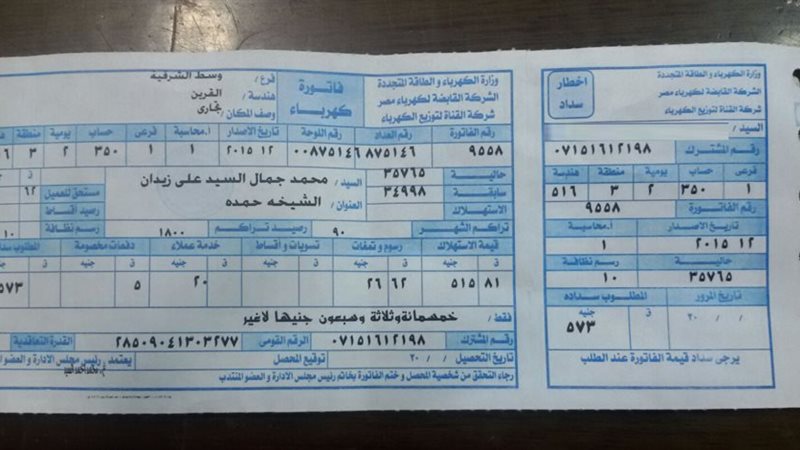 وزارة الكهرباء و الطاقة المتجددة
الشركة القابضة لكهرباء مصر
شركة القناة لتوزيع الكهرباء
اخطار سداد
السيد /
رقم المشترك ٠٧١٥١٦١٢١٩٨
فرعى حساب يومية منطقة هندسة
١ ٣٥٠ ٢ ٣ ٥١٦
رقم الفاتورة ٩٥٥٨
تاريخ الاصدار أ.محاسبة
١٢ ٢٠١٥ ١
حالية رسم نظافة
٣٥٧٦٥ ١٠
تاريخ المرور المطلوب سداده
/ / ٢٠ ق جنيه
٥٧٣
يرجى سداد قيمة الفاتورة عند الطلب
وزارة الكهرباء و الطاقة المتجددة
الشركة القابضة لكهرباء مصر
شركة القناة لتوزيع الكهرباء
فاتورة كهرباء
فرع / وسط الشرقية
هندسة / القرين
وصف المكان / تجارى
رقم الفاتورة رقم العداد رقم اللوحة تاريخ الاصدار أ.محاسبة فرعى حساب يومية منطقة
٩٥٥٨ ٨٧٥١٤٦ ٠٠٨٧٥١٤٦ ١٢ ٢٠١٥ ١ ١ ٣٥٠ ٢ ٣ ٦
حالية ٣٥٧٦٥
سابقة ٣٤٩٩٨
الاستهلاك
السيد / محمد جمال السيد على زيدان
العنوان / الشيخه حمده
ق
مستحق للعميل ٦٢
رصيد اقساط
تراكم الشهر ٩٠ رصيد تراكم ١٨٠٠ رسم نظافة ١٠
قيمة الاستهلاك رسوم و تمغات تسويات و اقساط خدمة عملاء دفعات مخصومة المطلوب سداده
ق جنيه ق جنيه ق جنيه ق جنيه ق جنيه ق
٨١ ٥١٥ ٦٢ ٢٦ ٢٠ ٥ ٥٧٣
فقط / خمسمائة وثلاثة وسبعون جنيها لاغير
رقم المشترك ٠٧١٥١٦١٢١٩٨ الرقم القومى ٢٨٥٠٩٠٤١٣٠٣٢٧٧ القدرة التعاقدية
تاريخ التحصيل / / ٢٠ توقيع المحصل يعتمد , رئيس مجلس الادارة و العضو
رجاء التحقق من شخصية المحصل و ختم الفاتورة بخاتم رئيس مجلس الادارة و العضو المنتدب